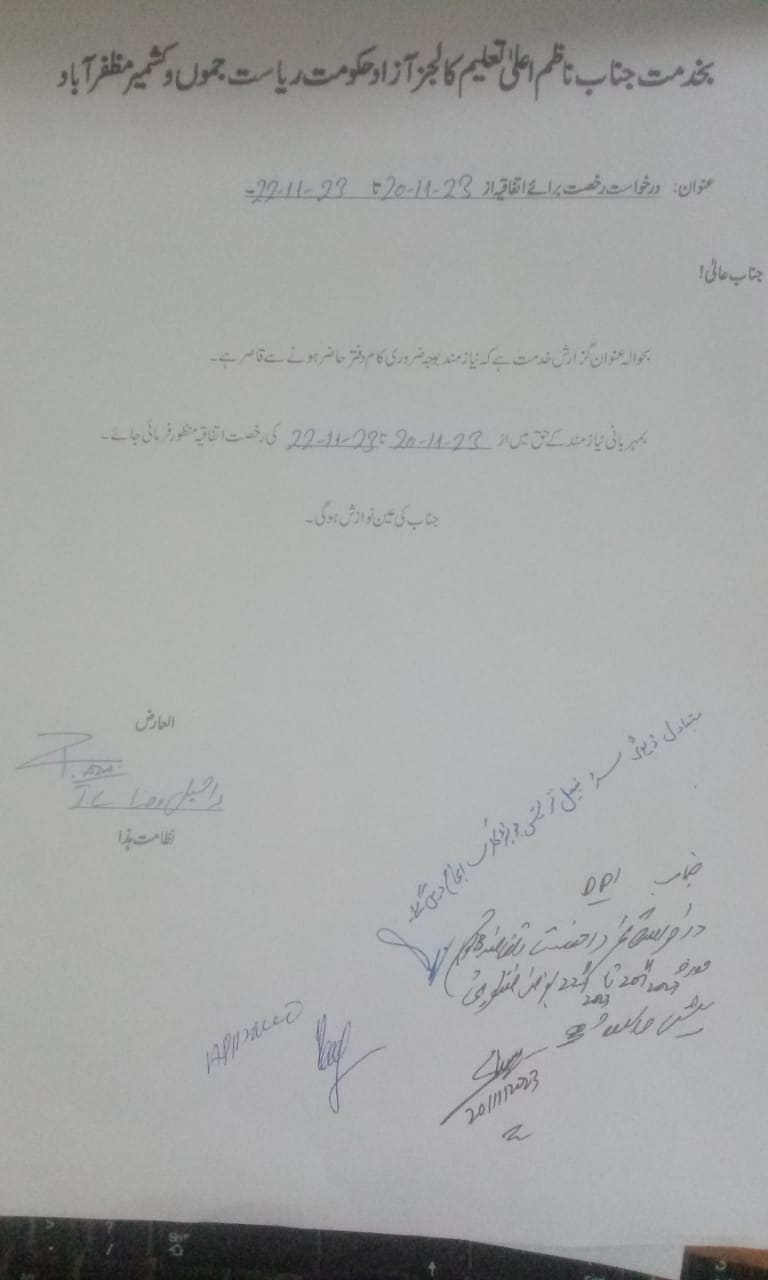 بخدمت جناب ناظم اعلیٰ تعلیم کالجز آزاد حکومت ریاست جموں و کشمیر مظفرآباد
عنوان: درخواست رخصت برائے اتفاقیہ از 20-11-23 تا 22-11-23-
جناب عالی!
بحوالہ عنوان گزارش خدمت ہے کہ نیازمند بوجہ ضروری کام دفتر حاضر ہونے سے قاصر ہے۔
بمہربانی نیازمند کے حق میں از 20-11-23 تا 22-11-23 کی رخصت اتفاقیہ منظور فرمائی جائے۔
جناب کی عین نوازش ہوگی۔
العارض
نظامت ہذا
متبادل ڈیوٹی
جناب DPI
20/11/2023
APPROVED